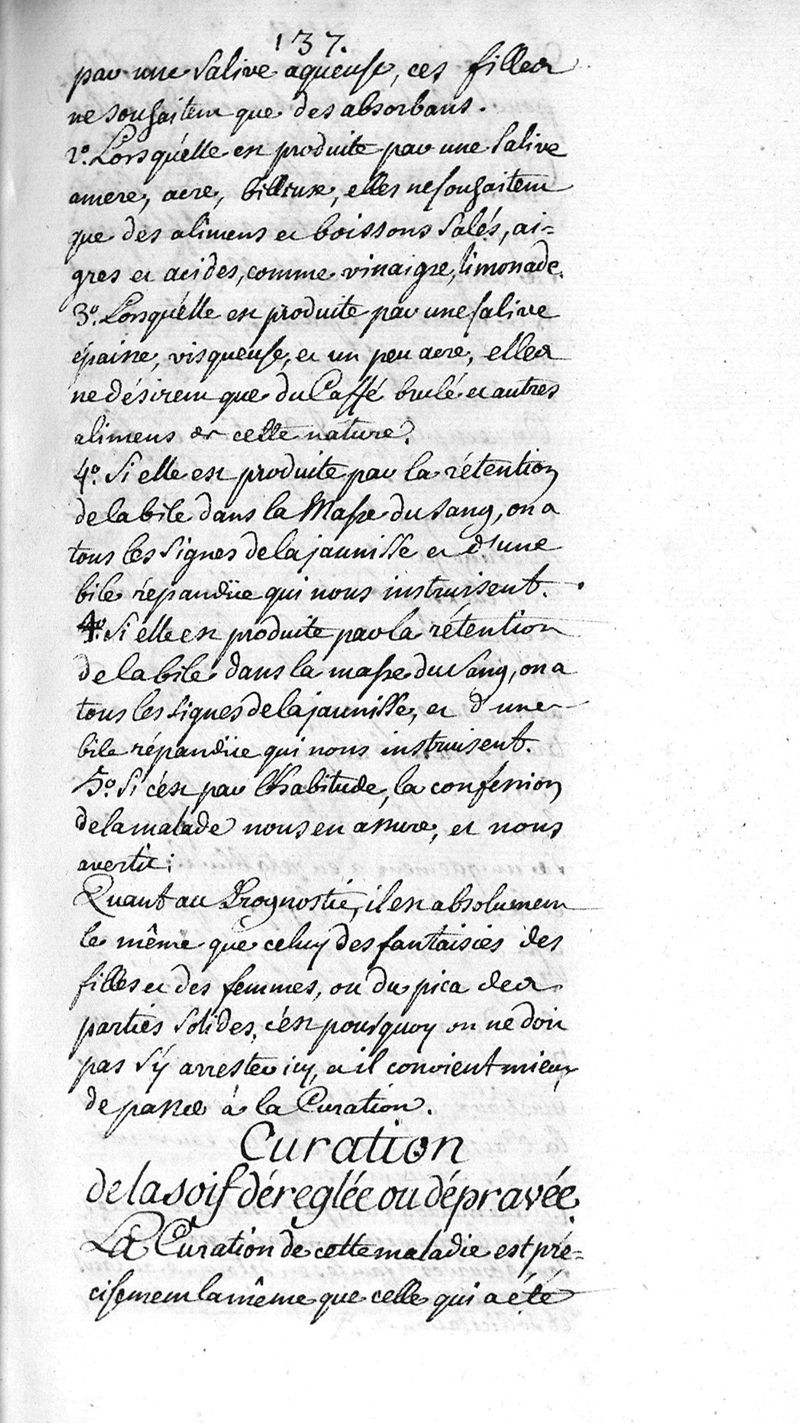 137.
par une Salive aqueuse, ces filles
ne souhaitent que des absorbans.
2º. Lorsqu'elle est produite par une Salive
amere, acre, billieuse, elles ne souhaitent
que des alimens et boissons Salés, ai=
gres et acides, comme vinaigre, limonade.
3º. Lorsqu'elle est produite par une salive
épaisse, visqueuse, et un peu acre, elles
ne désirent que du Caffé brulé et autres
alimens de cette nature.
4º. Si elle est produite par la rétention
de la bile dans la Masse du Sang, on a
tous les Signes de la jaunisse et d'une
bile répandüe qui nous instruisent.
4º. Si elle est produite par la rétention
de la bile dans la masse du Sang, on a
tous les Signes de la jaunisse, et d'une
bile répandüe qui nous instruisent.
5º. Si c'est par l'habitude, la confession
de la malade nous en assure, et nous
avertit;
Quant au Prognostic, il est absolument
le même que celuy des fantaisies des
filles et des femmes, ou du pica des
parties Solides, c'est pourquoy on ne doit
pas s'y arrester icy, et il convient mieux
de passer à la Curation.
Curation
de la soif déreglée ou dépravée
La Curation de cette maladie est pré=
cisement la même que celle qui a été